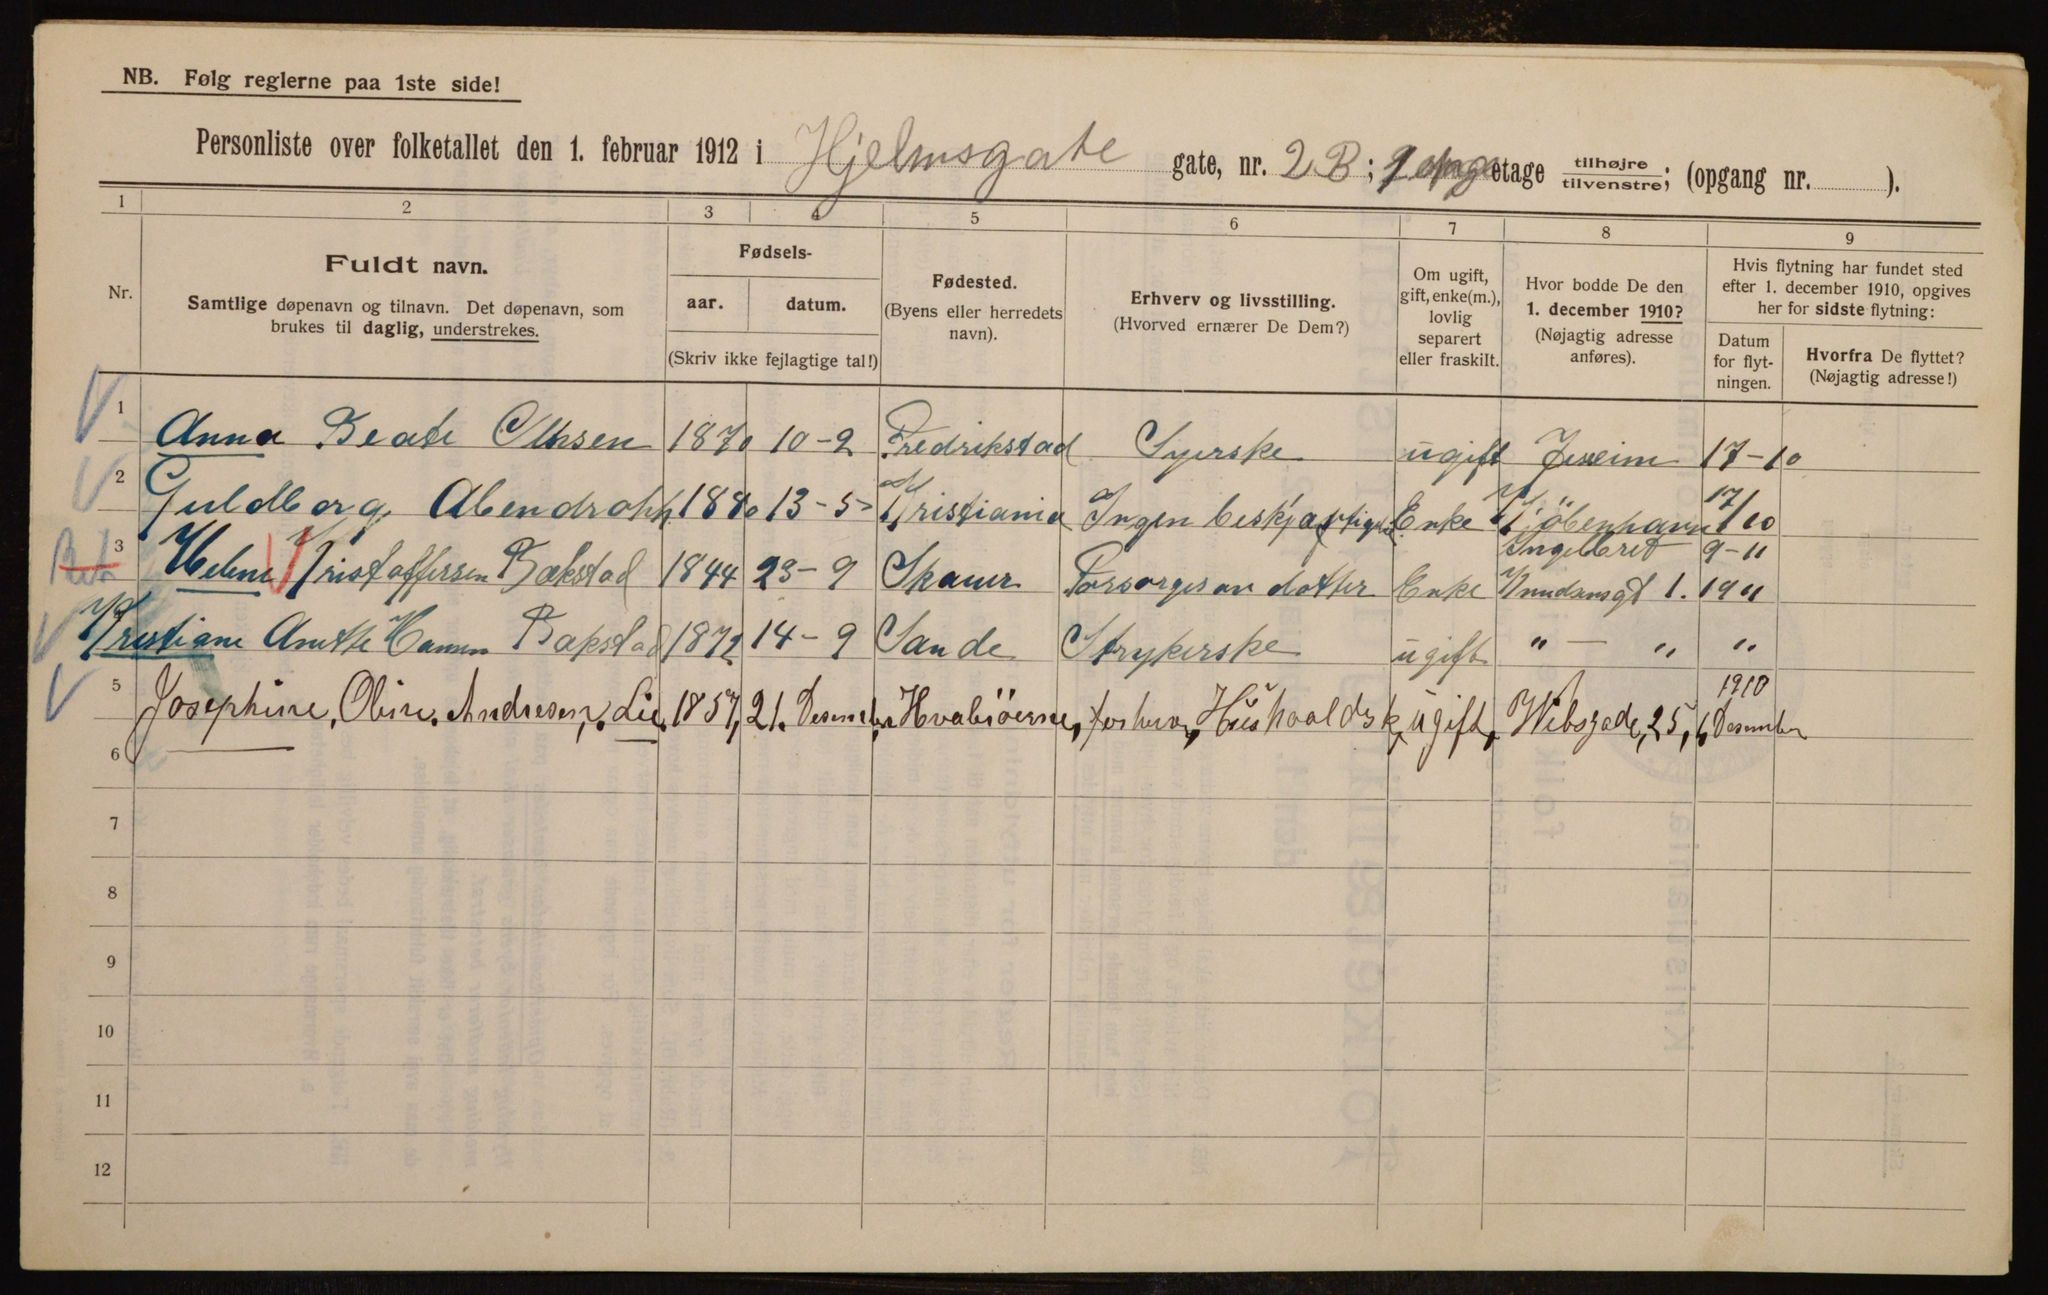 NB. Følg reglerne paa 1ste side!
Personliste over folketallet den 1. februar 1912 i Hjelmsgate gate, nr. 2B; etage tilhøjre/tilvenstre; (opgang nr. ).
1 2 3 4 5 6 7 8 9
Nr.
Fuldt navn.
Samtlige døpenavn og tilnavn. Det døpenavn, som
brukes til daglig, understrekes.
Fødsels-
aar. datum.
(Skriv ikke fejlagtige tal!)
Fødested.
(Byens eller herredets
navn).
Erhverv og livsstilling.
(Hvorved ernærer De Dem?)
Om ugift,
gift, enke(m.),
lovlig
separert
eller fraskilt.
Hvor bodde De den
1. december 1910?
(Nøjagtig adresse
anføres).
Hvis flytning har fundet sted
efter 1. december 1910, opgives
her for sidste flytning:
Datum
for flyt-
ningen.
Hvorfra De flyttet?
(Nøjagtig adresse!)
1 Anna Beate Olhsen 1870 10-2 Fredrikstad Syerske ugift Jexeim 17-10
2 Guldborg Abendroth 1880 13-5 Kristiania Ingen beskjæftigelse Enke Kjöbenhavn 17/10
3 Helene Kristoffersen Bækstad 1844 23-9 Skauer Forsørges av dotter Enke Ingelbret Knudsensgt 1. 9-11 1911
Kristiane Anette Hansen Bækstad 1872 14-9 Sande Strykerske ugift " — " "
5 Josephine, Oline, Andresen, Lie, 1857, 21. Desember, Hvaløerne, forhen, Hüshooldsk, ugift, Wibsgade, 25, 1910 Desember
6
7
8
9
10
11
12